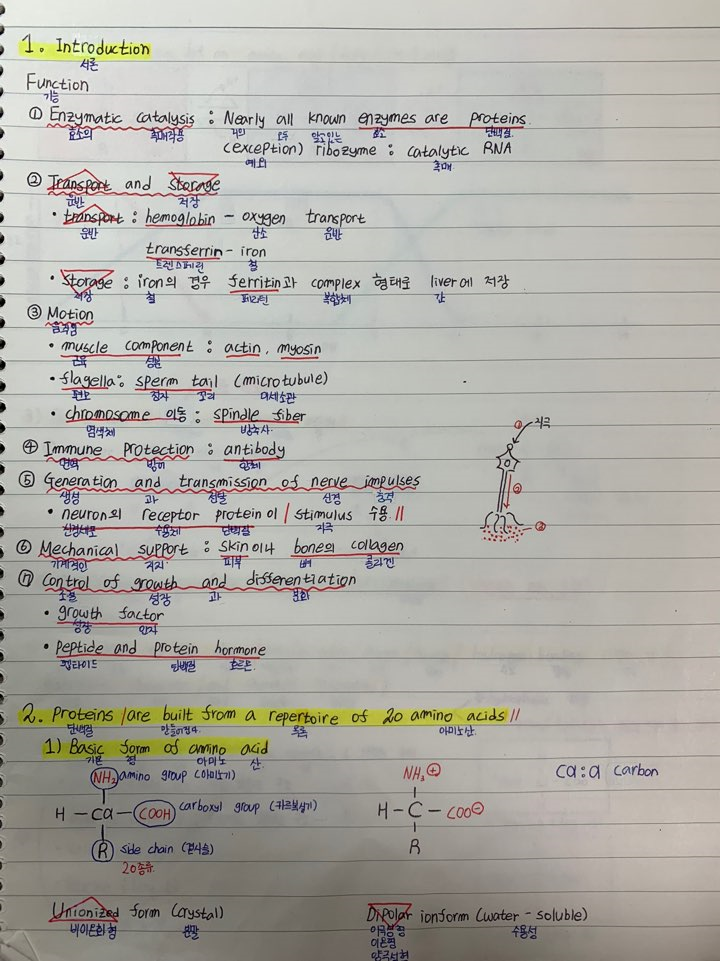 1. Introduction
서론
Function
기능
① Enzymatic catalysis : Nearly all known enzymes are proteins.
효소의 촉매작용 거의 모두 알고있는 효소 단백질
(exception) ribozyme : catalytic RNA
예외 촉매
② Transport and Storage
운반 저장
• transport : hemoglobin - oxygen transport
운반 산소 운반
transferrin - iron
트렌스페린 철
• Storage : iron의 경우 ferritin과 complex 형태로 liver에 저장
저장 철 페리틴 복합체 간
③ Motion
움직임
• muscle component : actin, myosin
근육 성분
• flagella : sperm tail (microtubule)
편모 정자 꼬리 미세소관
• chromosome 이동 : spindle fiber
염색체 방추사
① 자극
④ Immune Protection : antibody
면역 방어 항체
⑤ Generation and transmission of nerve impulses
생성 과 전달 신경 충격
• neuron의 receptor protein이 / stimulus 수용 //
신경세포 수용체 단백질 자극
⑥ Mechanical support : skin이나 bone의 collagen
기계적인 지지 피부 뼈 콜라겐
⑦ Control of growth and differentiation
조절 성장 과 분화
• growth factor
성장 인자
• peptide and protein hormone
펩타이드 단백질 호르몬
2. Proteins / are built from a repertoire of 20 amino acids //
단백질 만들어졌다. 목록 아미노산.
1) Basic form of amino acid
기본 형 아미노 산
NH₂ amino group (아미노기)
H - Cα - COOH carboxyl group (카르복실기)
R side chain (곁사슬)
20종류.
NH₃⊕
H - C - COO⊖
R
Cα : α carbon
Unionized form (crystal)
비이온화형 분말
Dipolar ionform (water - soluble)
이극성형 수용성
이온형
양극성형